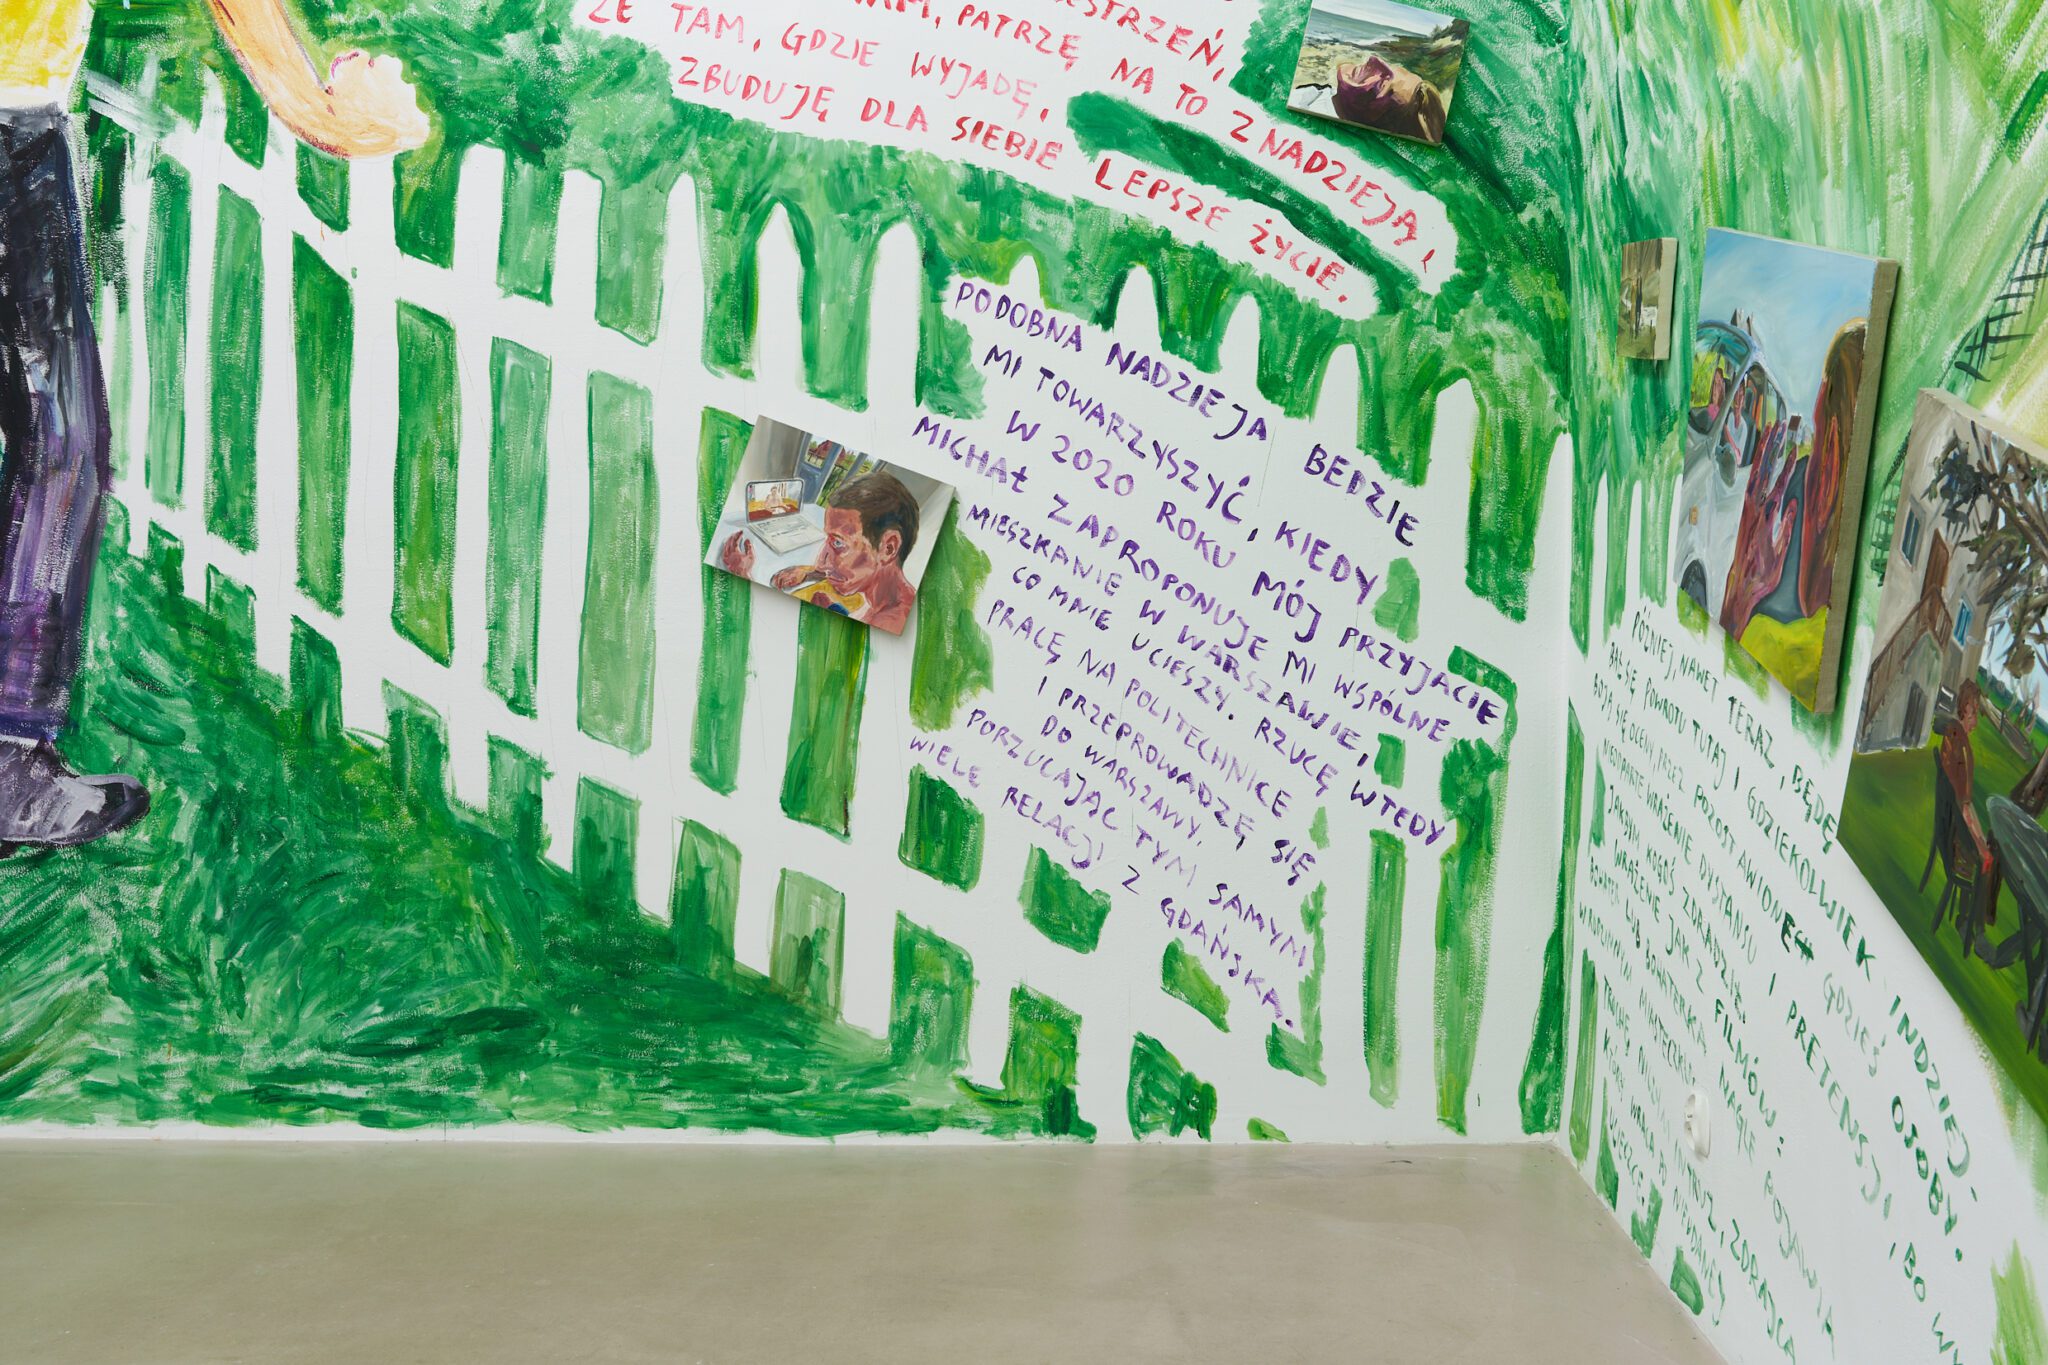 PATRZĘ NA TO Z NADZIEJĄ,
ŻE TAM, GDZIE WYJADĘ,
ZBUDUJĘ DLA SIEBIE LEPSZE ŻYCIE.
PODOBNA NADZIEJA BEDZIE
MI TOWARZYSZYĆ, KIEDY
W 2020 ROKU MÓJ PRZYJACIEL
MICHAŁ ZAPROPONUJE MI WSPÓLNE
MIESZKANIE W WARSZAWIE,
CO MNIE UCIESZY. RZUCĘ WTEDY
PRACĘ NA POLITECHNICE
I PRZEPROWADZĘ SIĘ
DO WARSZAWY,
PORZUCAJĄC TYM SAMYM
WIELE RELACJI Z GDAŃSKA.
PÓŹNIEJ, NAWET TERAZ, BĘDĘ
BAŁ SIĘ POWROTU TUTAJ I GDZIEKOLWIEK INDZIEJ.
BOJĄ SIĘ OCENY PRZEZ POZOSTAWIONE GDZIEŚ OSOBY.
NIEODPARTE WRAŻENIE DYSTANSU I PRETENSJI, BO
JAKBYM KOGOŚ ZDRADZIŁ.
WRAŻENIE JAK Z FILMÓW:
BOHATER LUB BOHATERKA NAGLE POJAWIA
W RODZINNYM MIASTECZKU
TROCHĘ NICZYM INTRUZ, ZDRAJCA
KTÓRY WRACA PO NIEUDANEJ
UCIECZCE.